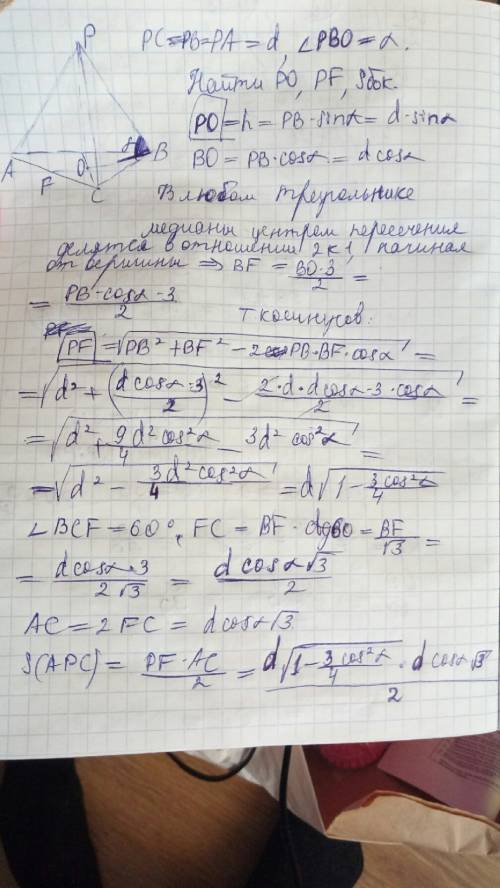 P
A
B
C
F
O
α
PC=PB=PA=d, ∠PBO=α.
Найти PO, PF, Sбок.
PO=h=PB·sinα=d·sinα
BO=PB·cosα=d cosα
В любом треугольнике
медианы центром пересечения
делятся в отношении 2 к 1 начиная
от вершины ⇒ BF = BO·3/2 =
= PB·cosα·3/2
Т косинусов:
PF = √(PB²+BF²-2·PB·BF·cosα) =
= √(d²+(d cosα·3/2)² - 2·d·d cosα·3·cosα/2) =
= √(d²+9/4 d²cos²α - 3d²cos²α) =
= √(d² - 3d²cos²α/4) = d√(1-3/4 cos²α)
∠BCF=60°, FC = BF· = BF/√3 =
= d cosα·3/2√3 = d cosα√3/2
AC = 2FC = d cosα√3
S(APC) = PF·AC/2 = d√(1-3/4 cos²α)·d cosα√3/2